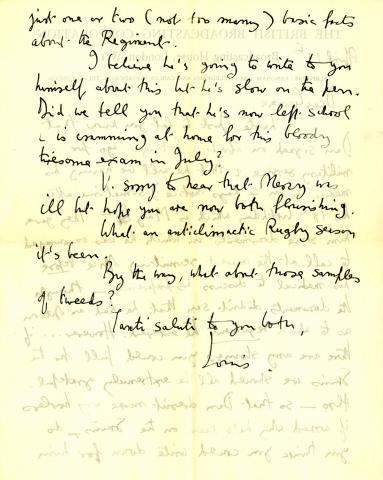 just one or two (not too many) basic facts
about the Regiment.
I believe he's going to write to you
himself about this but he's slow on the pen.
Did we tell you that he's now left school
& is cramming at home for this bloody
tiresome exam in July?
V. sorry to hear that Mercy was
ill but hope you are now both flourishing.
What an anticlimactic Rugby season
it's been.
By the way, what about those samples
of tweeds?
Tanti saluti to you both,
Louis.